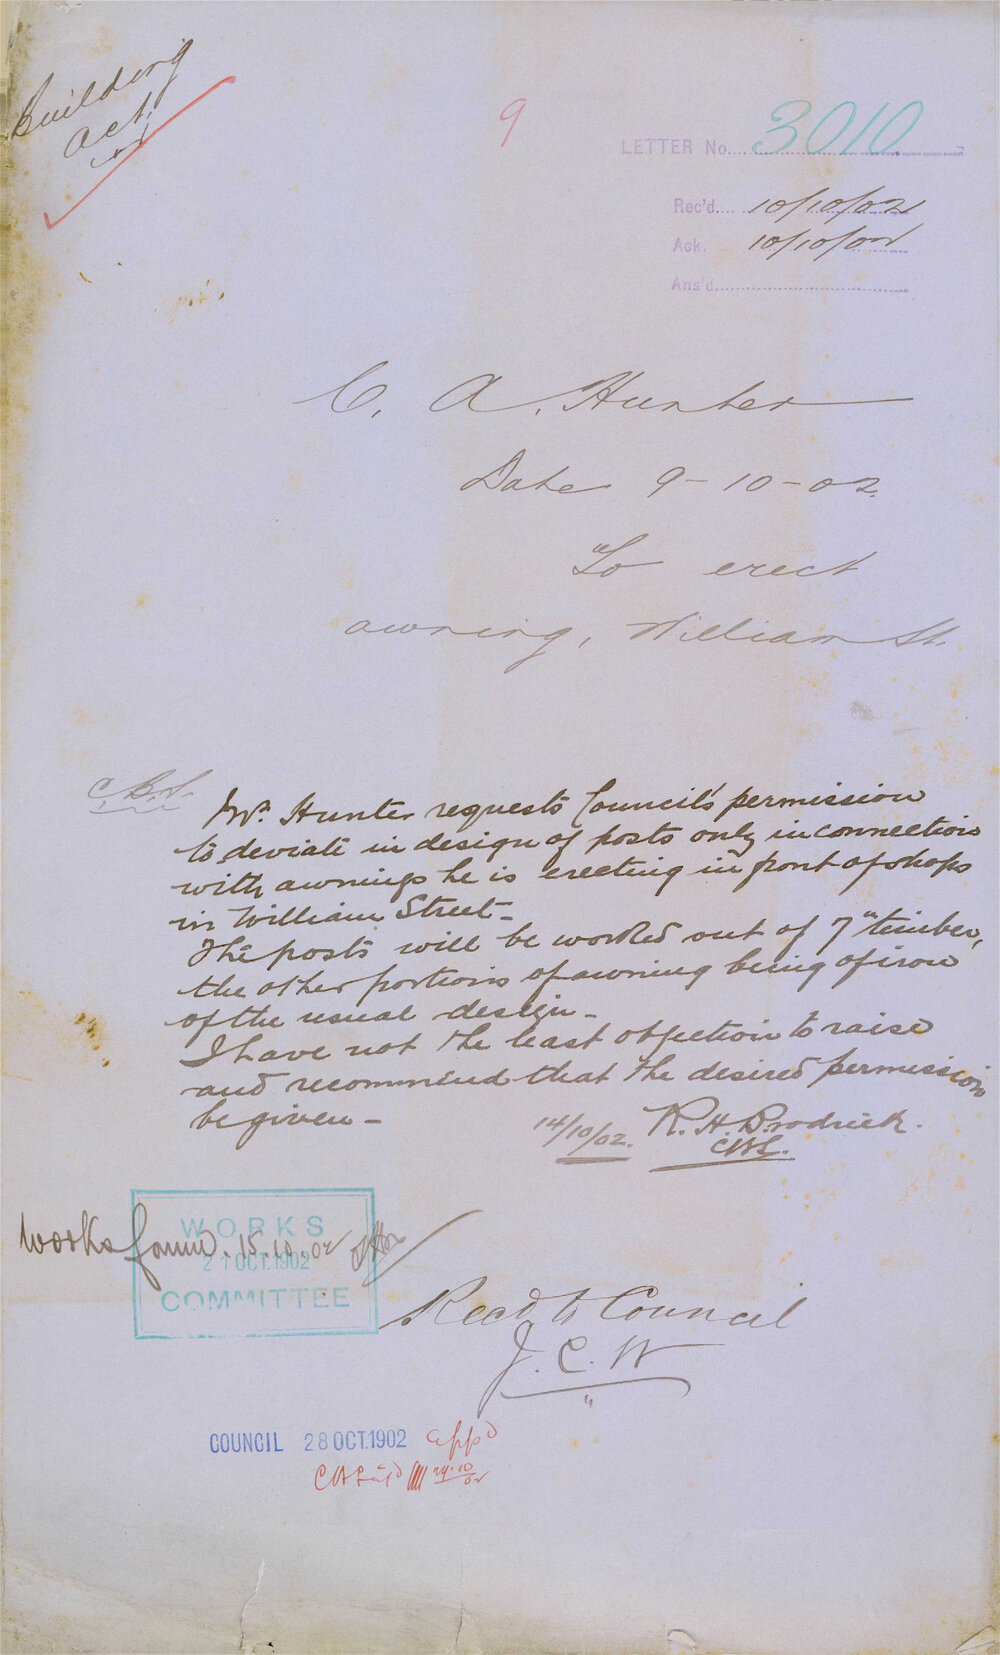 Building
Act.
9
LETTER No. 3010
Rec'd. 10/10/02
Ack. 10/10/02
Ans'd.
C. A. Hunter
Date 9-10-02.
To erect
awning, William St.
C.B.S.
Mr. Hunter requests Council's permission
to deviate in design of posts only in connection
with awnings he is erecting in front of shops
in William Street-
The posts will be worked out of 7" timber,
the other portions of awning being of iron
of the usual design-
I have not the least objection to raise
and recommend that the desired permission
be given-
14/10/02. R. H. Brodrick.
WORKS
21 OCT. 1902
COMMITTEE
Works 15.10.02
Recd to Council
J. C. W
COUNCIL 28 OCT. 1902 appd
29.10
02